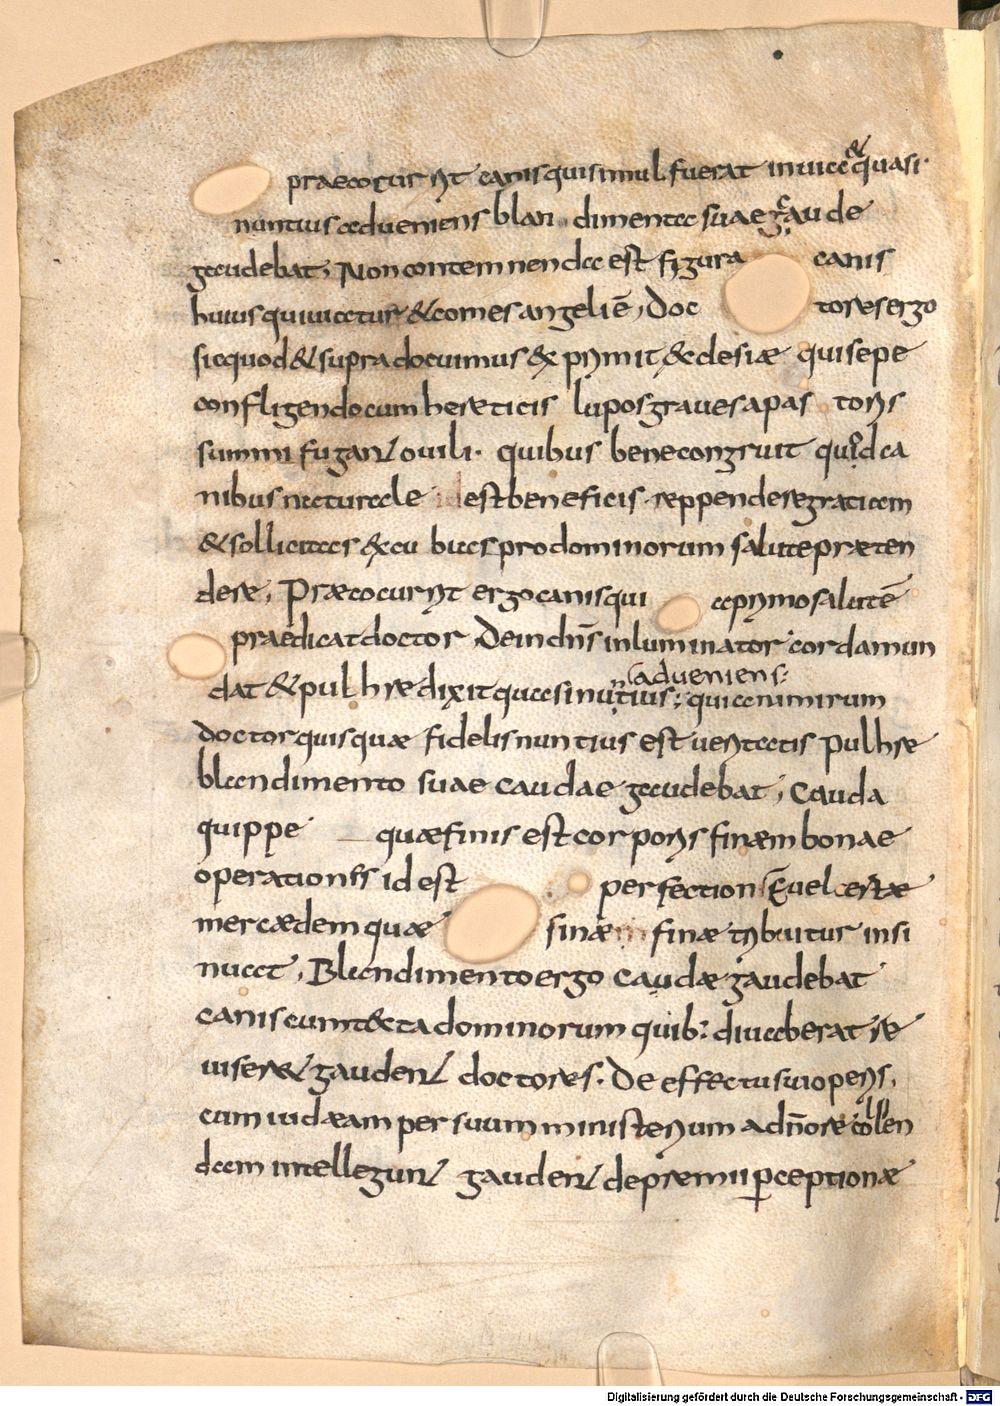 praecocurrit canis qui simul fuerat in uia & quasi·
nuntius adueniens blan dimenta suae c gaude
gaudebat, Non contemnenda est figura canis
huius qui uiatur & comes angeli ē, Doc tores ergo
sicquod & supra docuimus & primit & clesiæ qui sepe
confligendo cum hereticis lupos graues a pas toris
summi fugant ouili· quibus bene congruit quod ca
nibus naturale id est beneficis reppendere gratiam
& sollicitas excu bias pro dominorum salute præten
dere, Præcocurrit ergo canis qui a primo salutē
praedicat doctor, Dein dn̄s inluminator corda mun
dat & pulhre dixit quasi nuntius; adueniens: quia nimirum
doctor quisquæ fidelis nuntius est ueritatis pulhre
blandimento suae caudae gaudebat, Cauda
quippe quæ finis est corporis finæm bonae
operationis id est perfectionē uel certæ
mercædem quæ sinæ finæ tribuitur insi
nuat, Blandimento ergo caudæ gaudebat
canis cum tecta dominorum quib: diu aberat re
uiseret gaudent doctores· De effectu sui operis,
cum iudæam per suum ministerium a dn̄o re colli en
dam intellegunt gaudent de præmii perceptionæ
Digitalisierung gefördert durch die Deutsche Forschungsgemeinschaft - DFG